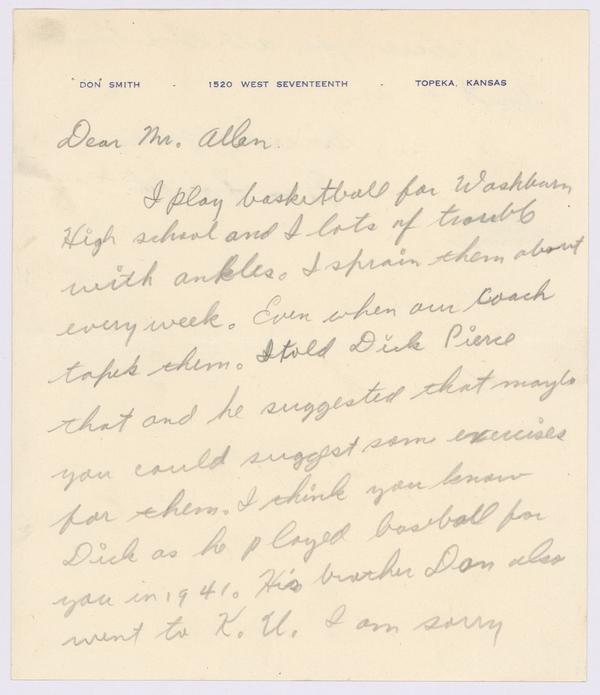 DON SMITH - 1520 WEST SEVENTEENTH - TOPEKA, KANSAS
Dear Mr. Allen.
I play basketball for Washburn
High school and I lots of trouble
with ankles. I sprain them about
every week. Even when our coach
tape's them. I told Dick Pierce
that and he suggested that maybe
you could suggest some exercises
for them. I think you know
Dick as he played baseball for
you in 1941. His brother Don also
went to K. U. I am sorry